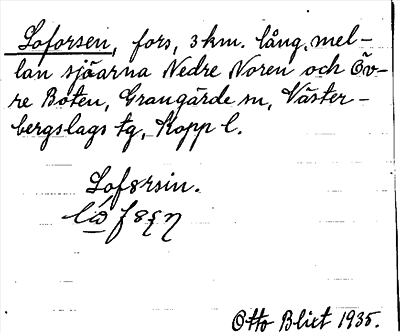 Loforsen, fors, 3 km. lång, mel-
lan sjöarna Nedre Noren och Öv-
re Boten, Grangärde sn, Väster-
bergslags tg, Kopp l.
Lof8rsin.
Otto Blixt 1935.